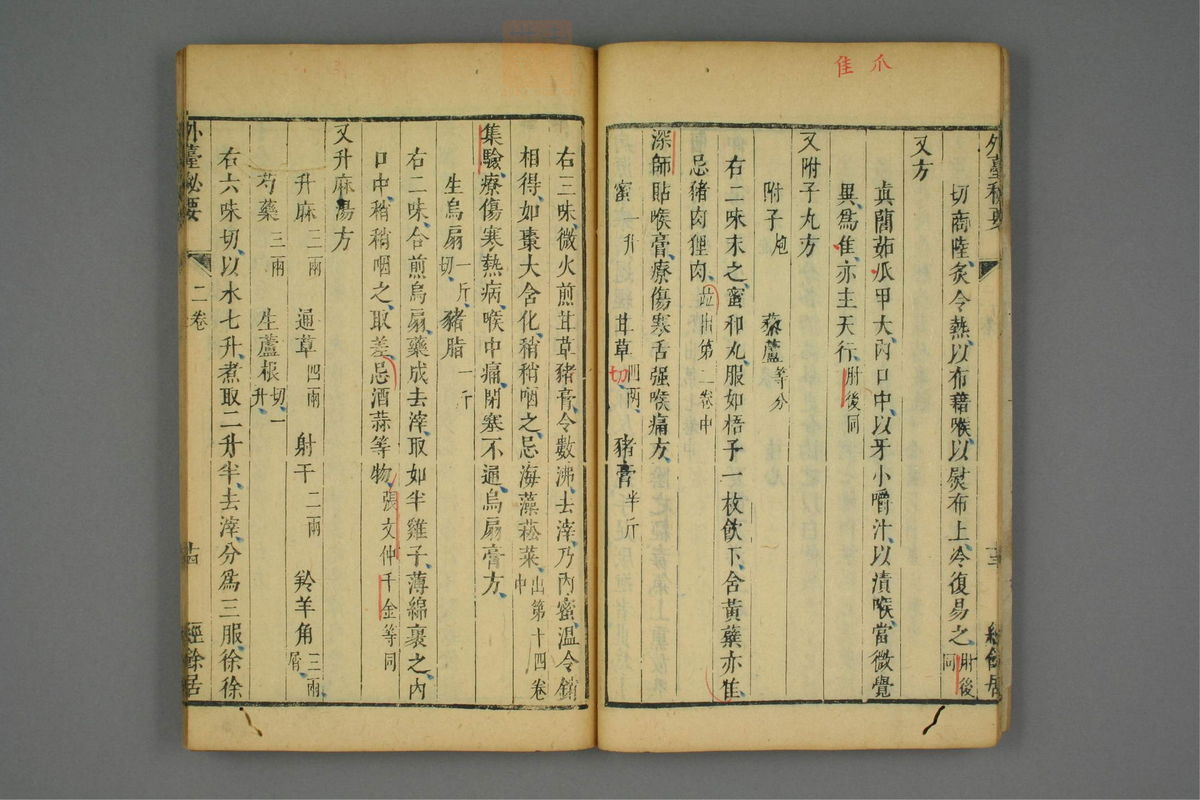 爪
隹
外臺秘要
十三
經餘居
切商陸炙令熱以布藉喉以熨布上冷復易之肘後同
又方
真䕡茹爪甲大內口中以牙小嚼汁以漬喉當微覺
異為隹亦主天行肘後同
又附子丸方
附子炮 藜蘆等分
右二味末之蜜和丸服如梧子一枚飲下含黃蘗亦隹
忌豬肉狸肉並出第二卷中
深師貼喉膏療傷寒舌强喉痛方
蜜一升 甘草四兩切 豬膏半斤
右三味微火煎甘草豬膏令數沸去滓乃內蜜溫令銷
相得如棗大含化稍稍咽之忌海藻菘菜出第十四卷中
集驗療傷寒熱病喉中痛閉塞不通烏扇膏方
生烏扇一斤切 豬脂一斤
右二味合煎烏扇藥成去滓取如半雞子薄綿裹之內
口中稍稍咽之取差忌酒蒜等物張文仲千金等同
又升麻湯方
升麻三兩 通草四兩 射干二兩 羚羊角三兩屑
芍藥三兩 生蘆根切一升
右六味切以水七升煮取二升半去滓分為三服徐徐
外臺秘要
二卷
十四
經餘居